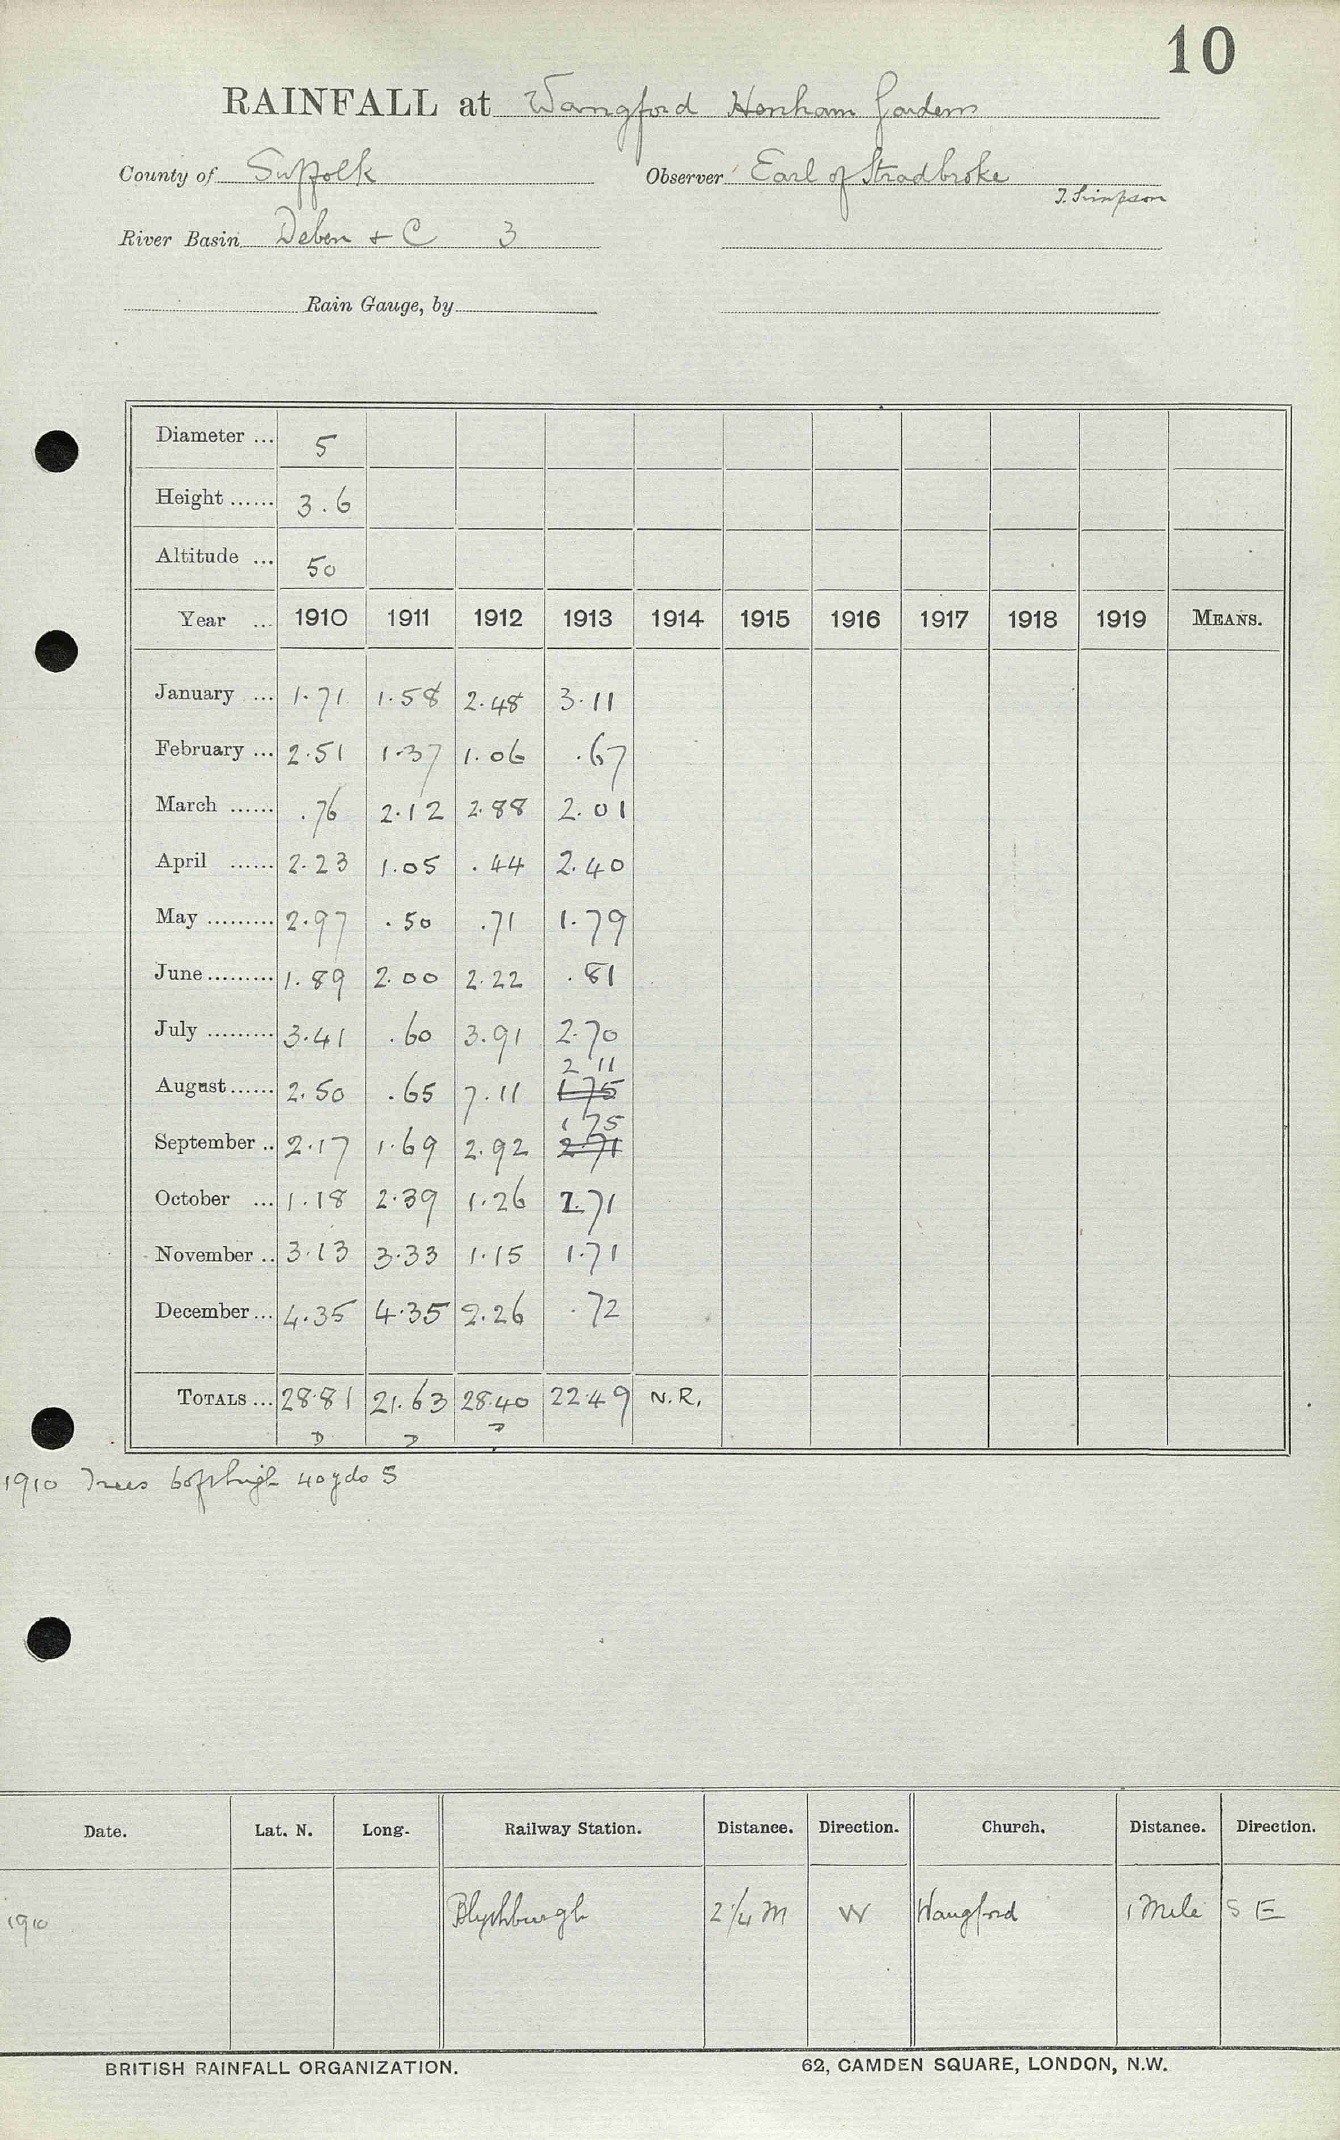 10
RAINFALL at Wangford Henham Gardens
County of Suffolk Observer Earl of Stradbroke
J. Simpson
River Basin Deben & C 3
Rain Gauge, by
Diameter ... 5
Height ...... 3.6
Altitude ... 50
Year ... 1910 1911 1912 1913 1914 1915 1916 1917 1918 1919 MEANS.
January ... 1.71 1.58 2.48 3.11
February ... 2.51 1.37 1.06 .67
March ...... .76 2.12 2.88 2.01
April ...... 2.23 1.05 .44 2.40
May ......... 2.97 .50 .71 1.79
June ......... 1.89 2.00 2.22 .81
July ......... 3.41 .60 3.91 2.70
2 11
August ...... 2.50 .65 7.11 1.75
1 75
September .. 2.17 1.69 2.92 2.71
October ... 1.18 2.39 1.26 2.71
November .. 3.13 3.33 1.15 1.71
December ... 4.35 4.35 2.26 .72
TOTALS ... 28.81 21.63 28.40 22.49 N.R.
D D D
1910 Trees 60ft high 40 yds S
Date. Lat. N. Long. Railway Station. Distance. Direction. Church. Distance. Direction.
1910 Blythburgh 2 1/4 M W Wangford 1 Mile S E
BRITISH RAINFALL ORGANIZATION. 62, CAMDEN SQUARE, LONDON, N.W.